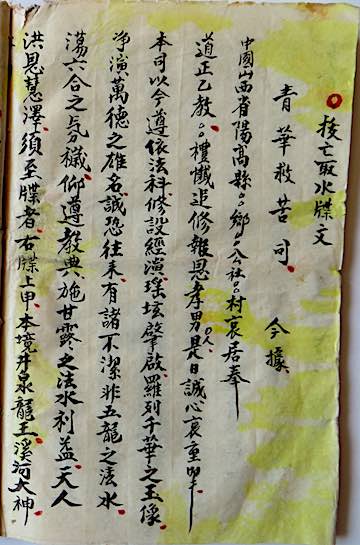 拔亡取水牒文
青華救苦司 今據
中國山西省陽高縣○○鄉○○公社○○村哀居奉
道正乙教○○禮懺追修報恩孝男○○人是日誠心哀重
本司以今遵依法科修設經演瑤坛肇啟羅列千華之玉像
净演萬德之雄名誠恐往來有諸不潔非五龍之法水
蕩六合之氛穢仰尊教典施甘露之法水利益天人
洪恩慧澤須至牒者右牒上申本境井泉龍王溪河大神